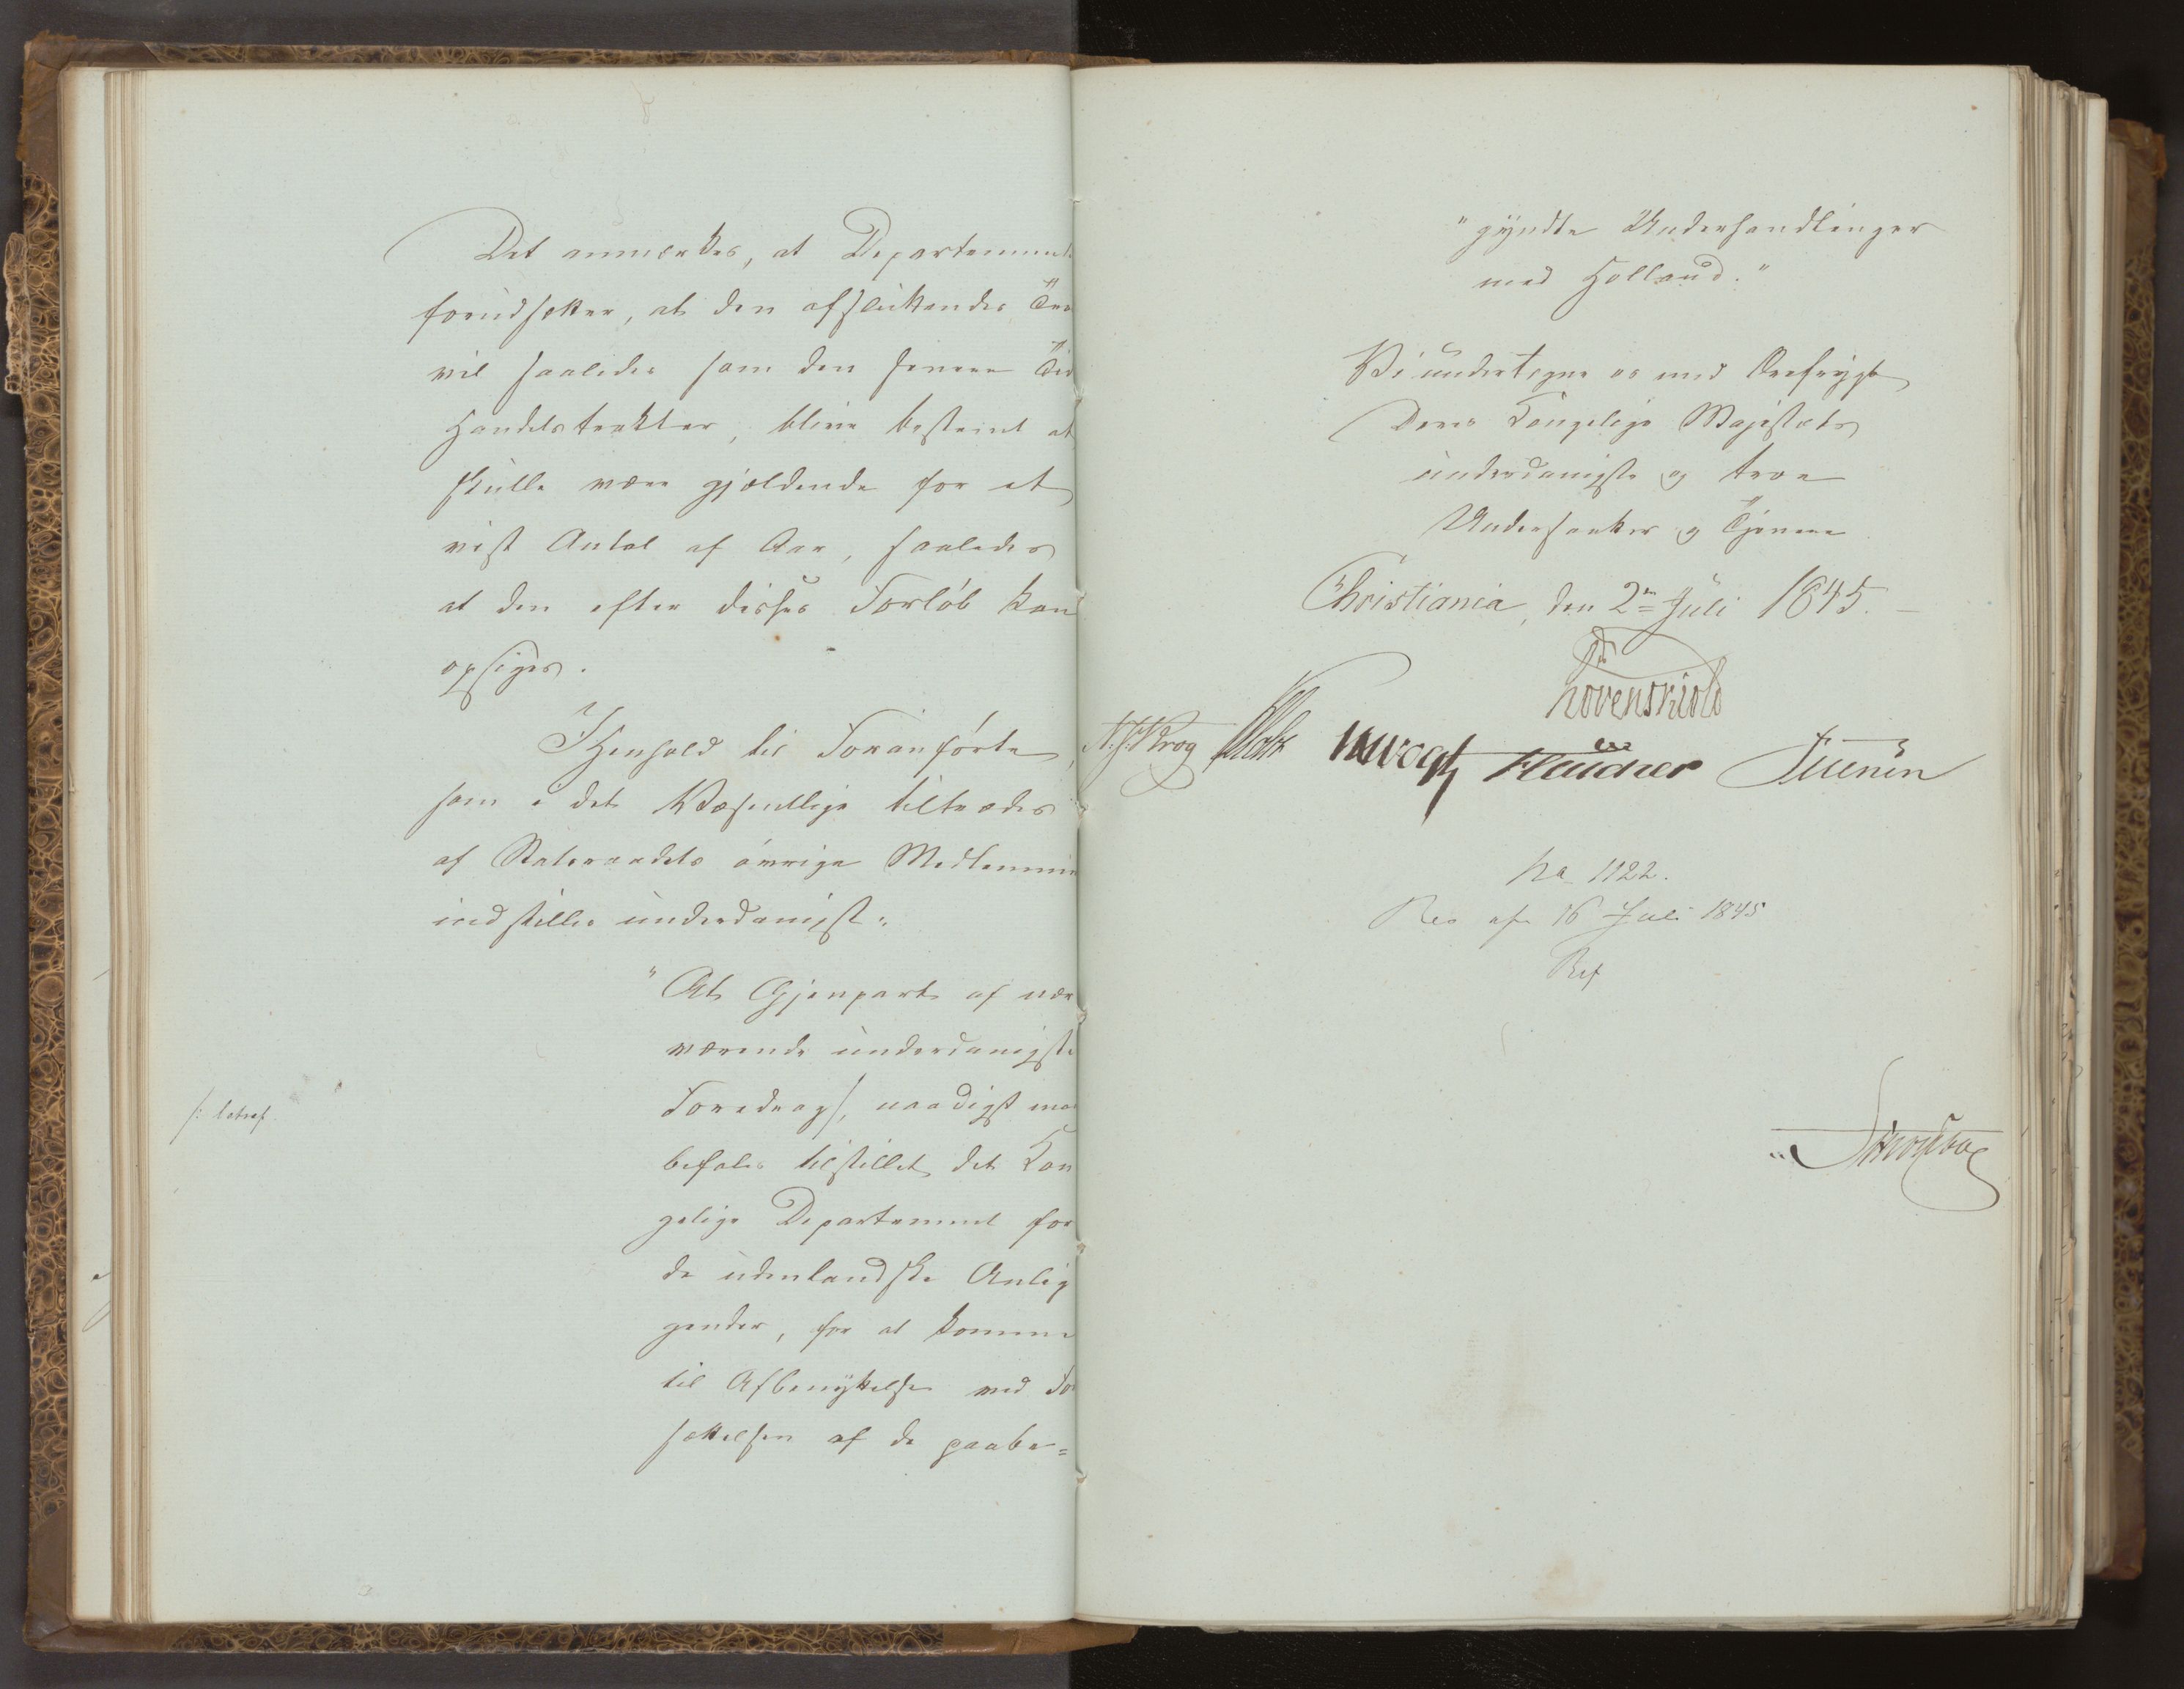 Det anmærkes, at Departement
forudsætter, at den afsluttendes Tra
vil saaledes som den senere Tid
Handelstrakter, blive bestemt at
skulle være gjældende for et
vist Antal af Aar, saaledes
at den efter disses Forløb kan
opsiges.
I Henhold til Foranførte,
som i det Væsentlige tiltrædes
af Statsraadets øvrige Medlemmer
indstilles underdanigst:
"At Gjenpart af nær
værende underdanigste
Foredrag /, naadigst maa
befales tilstillet det Kon
gelige Departement for
de udenlandske Anlig
gender, for at komme
til Afbenyttelse ved Fo
sættelsen af de paabe=
/: betræf.
"gyndte Underhandlinger
med Holland."
Vi undertegne os med Ærefrygt
Deres Kongelige Majestæts
underdanigste og troe
Undersaatter og Tjenere
Christiania, den 2en Juli 1845.
Løvenskiold
N. J. Krog Holst JHVogt
No 1122.
Res af 16 Juli 1845
Ref